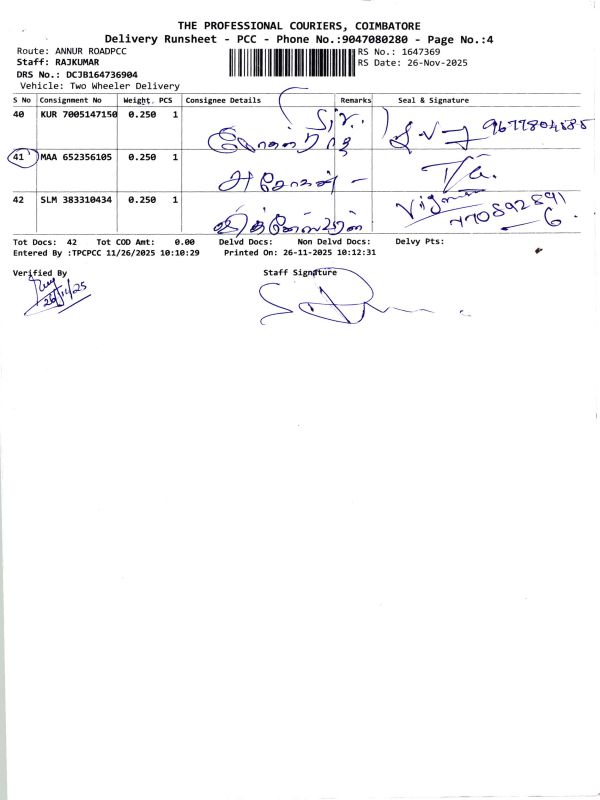 THE PROFESSIONAL COURIERS, COIMBATORE
Delivery Runsheet - PCC - Phone No.:9047080280 - Page No.:4
Route: ANNUR ROADPCC
RS No.: 1647369
Staff: RAJKUMAR
RS Date: 26-Nov-2025
DRS No.: DCJB164736904
Vehicle: Two Wheeler Delivery
S No Consignment No Weight. PCS Consignee Details Remarks Seal & Signature
40 KUR 7005147150 0.250 1 9677804585
41 MAA 652356105 0.250 1 அசோகன் -
42 SLM 383310434 0.250 1 விக்னேஸ்வரன்
770892891
6
Tot Docs: 42 Tot COD Amt: 0.00 Delvd Docs: Non Delvd Docs: Delvy Pts:
Entered By :TPCPCC 11/26/2025 10:10:29 Printed On: 26-11-2025 10:12:31
Verified By
Staff Signature
26/11/25